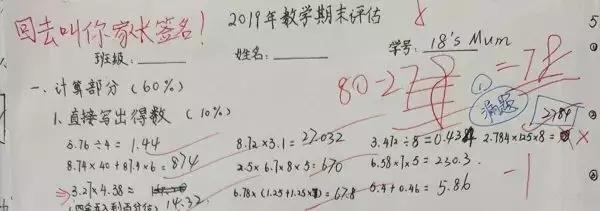 回去叫你家长签名!
2019年数学期末评估
班级: 姓名: 学号: 18's Mum
80-2 = 78
一、计算部分 (60%)
漏题
2784
1、直接写出得数 (10%)
5.76÷4= 1.44 8.72×3.1= 27.032 3.472÷8= 0.434 2.784×125×8=
8.74×40+87.4×6= 874 2.5×6.7×8×5= 670 6.58×7×5= 230.3
3.27×4.38= 14.32 6.78×(1.25+1.25× )= 67.8 5.4+0.46= 5.86
-1
(四舍五入到百分位)
5